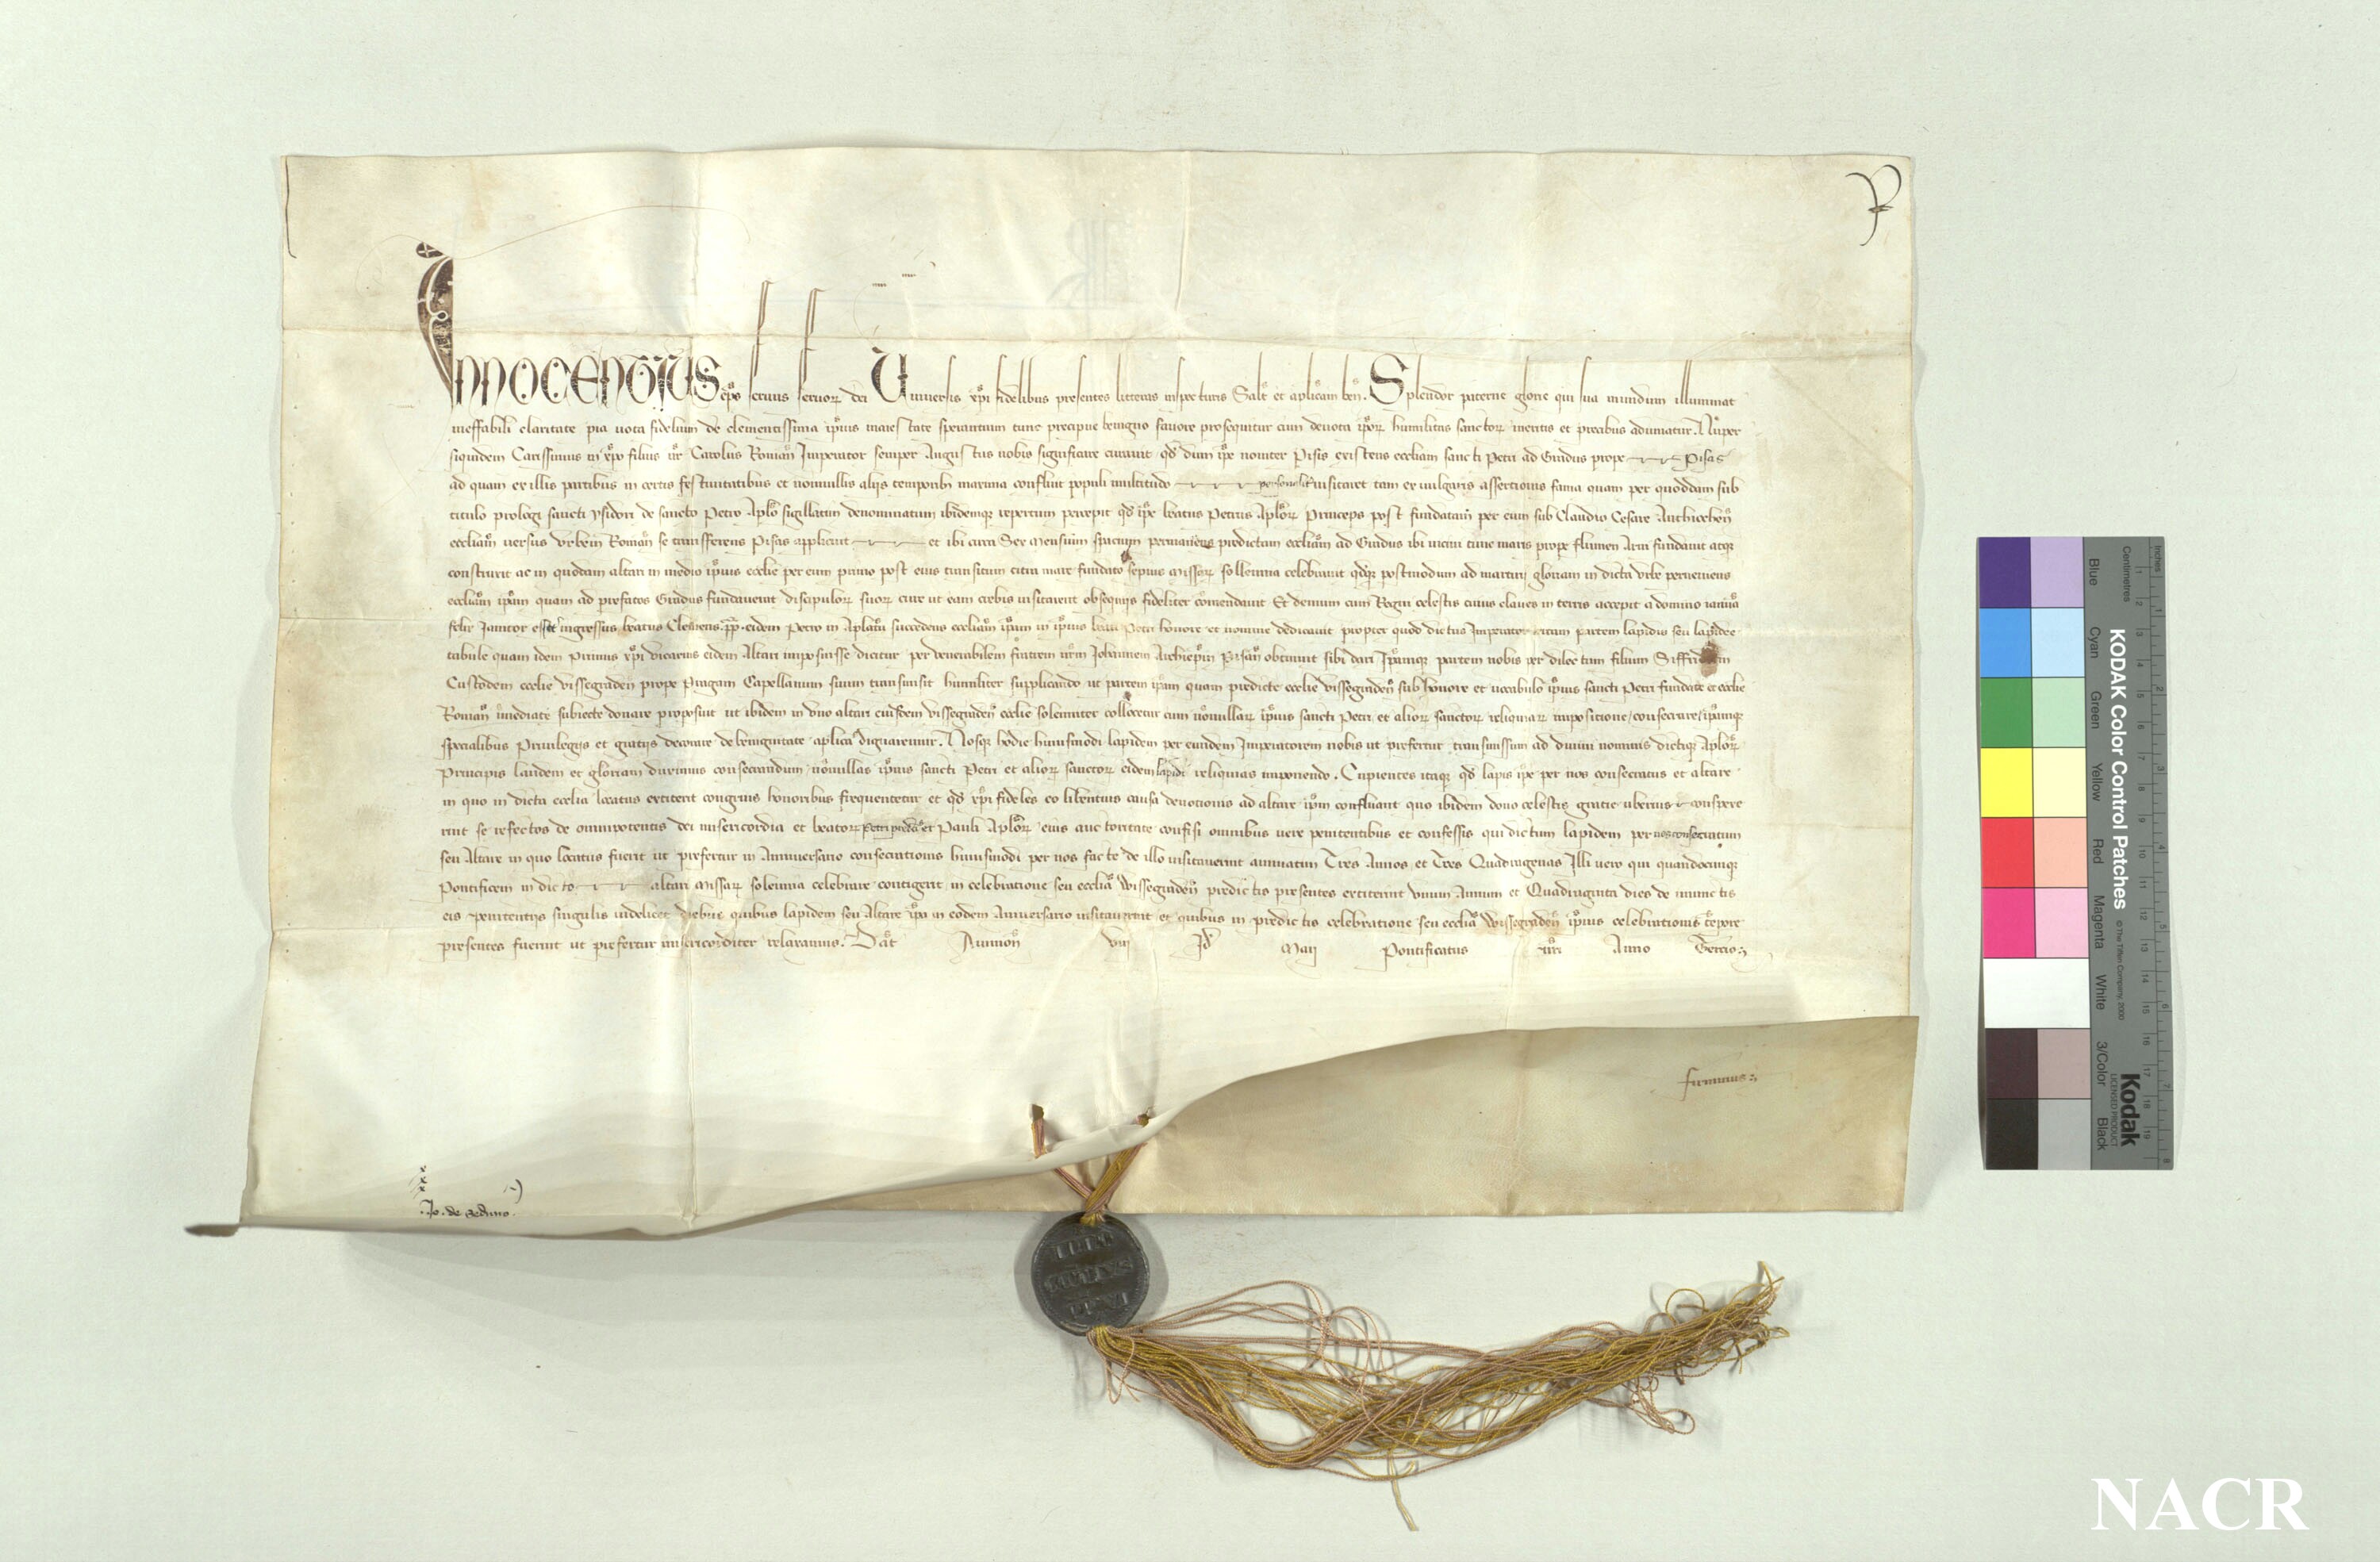 INNOCENTIUS ep̄s seruus seruoꝝ dei Uniuersis xp̄i fidelibus presentes litteras inspecturis Salt̄ et ap̄licam ben̄. Splendor paterne glorie qui sua mundum illuminat
ineffabili claritate pia uota fidelium de clementissima ip̄ius maiestate sperantium tunc precipue benigno fauore prosequitur cum deuota ip̄oꝝ humilitas sanctoꝝ meritis et precibus adiuuatur. Nup̄er
siquidem Carissimus in xp̄o filius nr̄ Carolus Roman̄ Imperator semper Augustus nobis significare curauit qd̄ dum ip̄e nouiter Pisis existens eccl̄iam sancti Petri ad Gradus prope Pisas
ad quam ex illis partibus in certis festiuitatibus et nonnullis alijs temporib; maxima confluit populi multitudo personalit̄ uisitaret tam ex uulgaris assertionis fama quam per quoddam sub
titulo prologi sancti ysidori de sancto Petro Ap̄lo sigillatim denominatum ibidemqꝫ repertum percepit qd̄ ip̄e beatus Petrus Ap̄loꝝ Princeps post fundatam per eum sub Claudio Cesare Anthiochen̄
eccl̄iam uersus Urbem Roman̄ se transferens Pisas applicuit et ibi circa Sex mensium spacium permanens predictam eccl̄iam ad Gradus ibi uicini tunc maris prope flumen Arni fundauit atqꝫ
construxit ac in quodam altari in medio ip̄ius eccl̄ie per eum primo post eius transitum citra mare fundato sepius missaꝝ sollemnia celebrauit qd̄qꝫ postmodum ad martirij gloriam in dicta urbe perueniens
eccl̄iam ip̄am quam ad prefatos Gradus fundauerat discipuloꝝ suoꝝ cure ut eam crebis uisitarent obsequijs fideliter com̄endauit Et demum cum Regni celestis cuius claues in terris accepit a domino ianua
felix Ianitor esset ingressus beatus Clemens .pp̄. eidem Petro in Ap̄latu succedens eccl̄iam ip̄am in ip̄ius beati Petri honore et nomine dedicauit propter quod dictus Imperator certam partem lapidis seu lapidee
tabule quam idem primus xp̄i vicarius eidem Altari imposuisse dicitur per venerabilem fratrem nr̄m Johannem Archiep̄m Pisan̄ obtinuit sibi dari Ip̄amqꝫ partem nobis per dilectum filium Siffridum
Custodem eccl̄ie Vissegraden̄ prope Pragam Capellanum suum transmisit humiliter supplicando ut partem ip̄am quam predicte eccl̄ie Vissegraden̄ sub honore et uocabulo ip̄ius sancti Petri fundate et eccl̄ie
Roman̄ im̄ediate subiecte donare proposuit ut ibidem in uno altari eiusdem Vissegraden̄ eccl̄ie solemniter collocetur cum non̄ullaꝝ ip̄ius sancti Petri et alioꝝ sanctoꝝ reliquiaꝝ impositione consecrare ip̄amqꝫ
specialibus Priuilegijs et gratijs decorare de benignitate ap̄lica dignaremur. Nosqꝫ hodie huiusmodi lapidem per eundem Imperatorem nobis ut prefertur transmissum ad diuini nominis dictiqꝫ Ap̄loꝝ
Principis laudem et gloriam duximus consecrandum non̄ullas ip̄ius sancti Petri et alioꝝ sanctoꝝ eidem lapidi reliquias imponendo. Cupientes itaqꝫ qd̄ lapis ip̄e per nos consecratus et altare
in quo in dicta eccl̄ia locatus extiterit congruis honoribus frequentetur et qd̄ xp̄i fideles eo libentius causa deuotionis ad altare ip̄m confluant quo ibidem dono celestis gratie uberius conspexe
rint se refectos de omnipotentis dei misericordia et beatoꝝ Petri predc̄i et Pauli Ap̄loꝝ eius auctoritate confisi omnibus uere penitentibus et confessis qui dictum lapidem per nos consecratum
seu Altare in quo locatus fuerit ut prefertur in Anniuersario consecrationis huiusmodi per nos facte de illo uisitauerint annuatim Tres Annos et Tres Quadragenas Illi uero qui quandocunqꝫ
Pontificem in dicto altari missaꝝ solemnia celebrare contigerit in celebratione seu eccl̄ia Wissegraden̄ predictis presentes extiterint unum Annum et Quadraginta dies de iniunctis
eis penitentijs singulis uidelicet diebus quibus lapidem seu Altare ip̄a in eodem Anniuersario uisitauerint et quibus in predictis celebratione seu eccl̄ia Wissegraden̄ ip̄ius celebrationis tēpore
presentes fuerint ut prefertur misericorditer relaxamus. Dat̄ Auinion̄ viij Id̄ Maij Pontificatus nr̄i Anno Tertio
firmauus
Jo. de Seduno.
Inches
Centimetres
KODAK Color Control Patches
© The Tiffen Company, 2000
Blue Cyan Green Yellow Red Magenta White 3/Color Black
Kodak
LICENSED PRODUCT
NACR